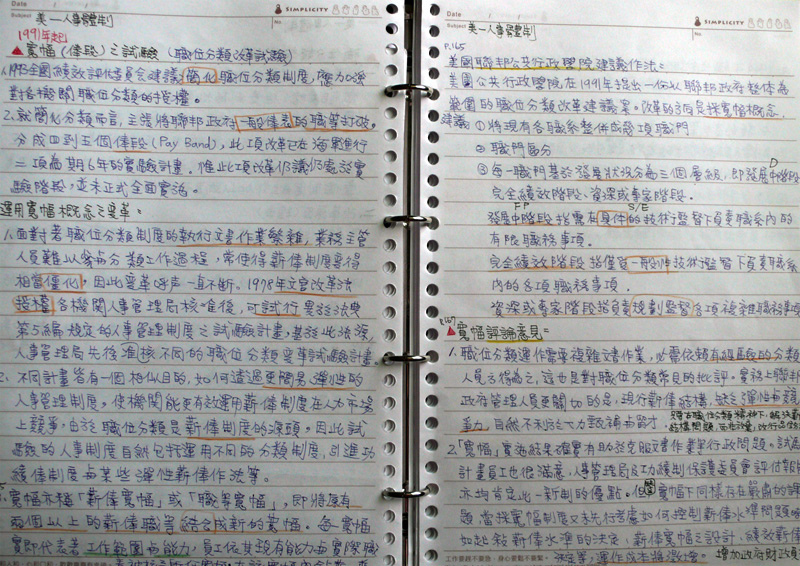 Date
Subject 美一人事體制
SIMPLICITY
No.
1991年起
▲寬幅(俸段)之試驗(職位分類改革試驗)
1.1993全國績效評估委員會建議簡化職位分類制度，應加強
對各機關職位分類的授權。
2.就簡化分類而言，主張將聯邦政府一般俸表的職等打破，
分成四到五個俸段(Pay Band)，此項改革已在海軍進行
二項為期6年的實驗計畫，惟此項改革仍議仍處於實
驗階段，並未正式全面實施。
運用寬幅概念之變革：
1.面對著職位分類制度的執行文書作業繁雜，業務主管
人員難以參與分類工作過程，常使得薪俸制度變得
相當僵化，因此變革呼聲一直不斷。1978年文官改革法
授權各機關人事管理局核准後，可試行異於法典
第5編規定的人事管理制度之試驗計畫，基於此法源，
人事管理局先後准核不同的職位分類變革試驗計畫
2.不同計畫皆有一個相似目的，如何透過更簡易彈性的
人事管理制度，使機關能更有效運用薪俸制度在人力市場
上競爭，由於職位分類是薪俸制度的源頭，因此試
驗的人事制度自然包括運用不同的分類制度，引進功
績俸制度與某些彈性薪俸作法等。
3.寬幅亦稱「薪俸寬幅」或「職等寬幅」，即將原有
兩個以上的薪俸職等結合成新的寬幅。每一寬幅
實即代表著工作範圍與能力，員工依其現有能力與實際職
Date
Subject 美一人事體制
SIMPLICITY
No.
P.165
美國聯邦公共行政學院建議作法：
美國公共行政學院在1991年提出一份以聯邦政府整體為
範圍的職位分類改革建議案。改革的方向是採寬幅概念。
建議①將現有各職系整併成數項職門
②職門區分
③每一職門基於發展狀況分為三個層級，即發展中階段 D
完全績效階段、資深或專家階段。
FP S/E
發展中階段指需有身件的技術監督下負責職系內的
有限職務事項。
完全績效階段指僅受一般性技術監督下負責職系
內的各項職務事項。
資深或專家階段指負責規劃監督各項複雜職務事項
P.167
▲寬幅評論意見：
1.職位分類運作需要複雜文書作業，必需依賴有經驗的分類
人員方得為之，這也是對職位分類常見的批評。實務上聯邦
政府管理人員更關切的是，現行薪俸結構，缺乏彈性與競
爭力，自然不利於人力致補與留才。
2.「寬幅」實施結果確實有助於克服文書作業與行政問題。試驗
計畫員工也很滿意，人事管理局及功績制保護委員會評估報告
亦均肯定此一新制的優點。但寬幅下同樣存在嚴肅的課
題，當採寬幅制度又未先行考慮如何控制薪俸水準問題時
如起敘薪俸水準的決定、薪俸寬幅之設計、績效薪俸
決定等，運作成本將激增。增加政府財政負